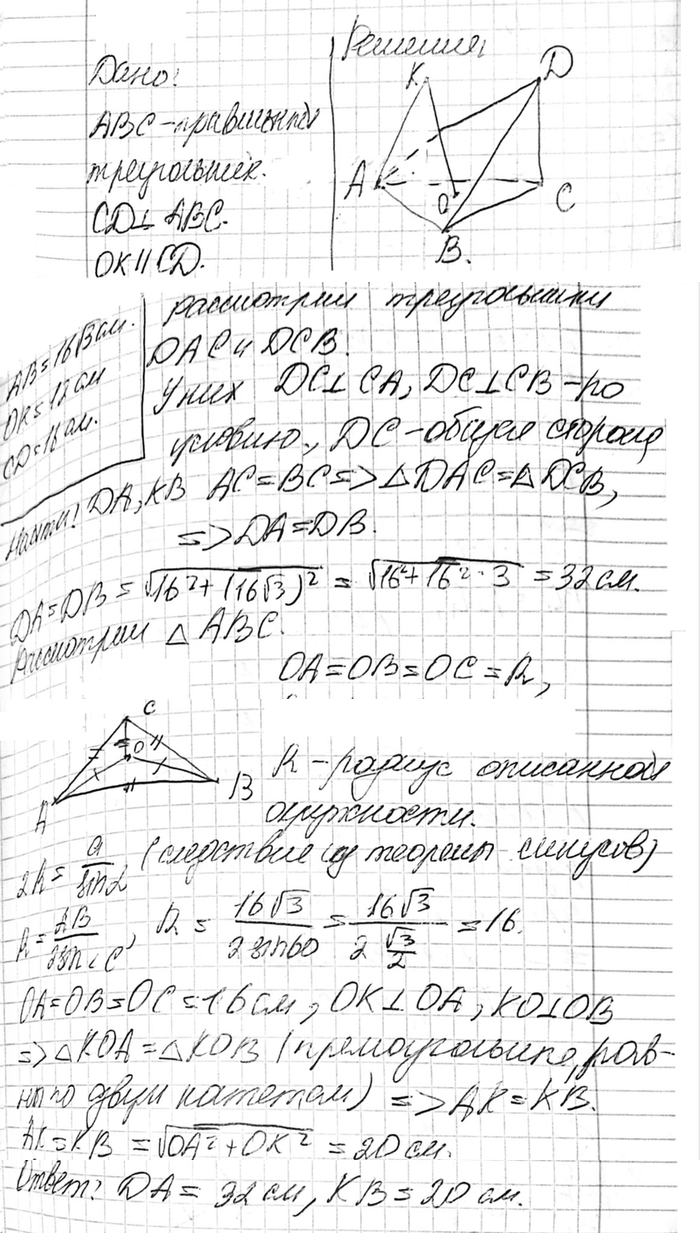 Дано:
ABC - правильный
треугольник.
CD⊥ ABC.
OK || CD.
AB = 16√3 см.
OK = 12 см
CD = 16 см.
Найти: DA, KB
Решение
K
D
A
O
C
B.
рассмотрим треугольники
DAC и DCB.
У них DC⊥CA, DC⊥CB - по
условию, DC - общая сторона,
AC = BC => △DAC = △DCB,
=> DA = DB.
DA = DB = √(16² + (16√3)²) = √(16² + 16² · 3) = 32 см.
Рассмотрим △ ABC.
OA = OB = OC = R,
C
O
A
B
R - радиус описанной
окружности.
2R = a / sin α (следствие из теоремы синусов)
R = AB / 2 sin ∠C, R = 16√3 / 2 sin 60 = 16√3 / 2 √3/2 = 16.
OA = OB = OC = 16 см, OK⊥OA, KO⊥OB
=> △KOA = △KOB (прямоугольные, рав-
ны по двум катетам) => AK = KB.
AK = KB = √(OA² + OK²) = 20 см.
Ответ: DA = 32 см, KB = 20 см.